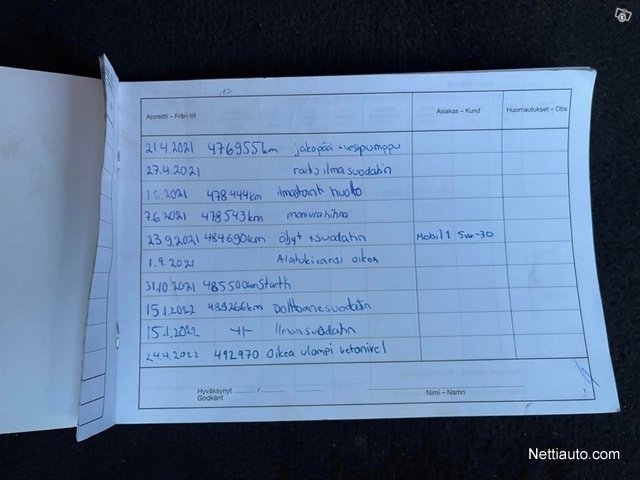 Ajoreitti – Från-till Asiakas – Kund Huomautukset – Obs
21.4.2021 476955km jakopää + vesipumppu
27.4.2021 raitisilmasuodatin
1.6.2021 478444km ilmastointi huolto
7.6.2021 478543km moniurahihna
23.9.2021 484690km öljyt + suodatin Mobil 1 5w-30
1.9.2021 Alatukivarsi oikea
31.10.2021 485500km
15.1.2022 489266km Polttoainesuodatin
15.1.2022 -11- Ilmansuodatin
24.4.2022 492970 Oikea ulompi vetonivel
Hyväksynyt
Godkänt
Nimi – Namn
Nettiauto.com